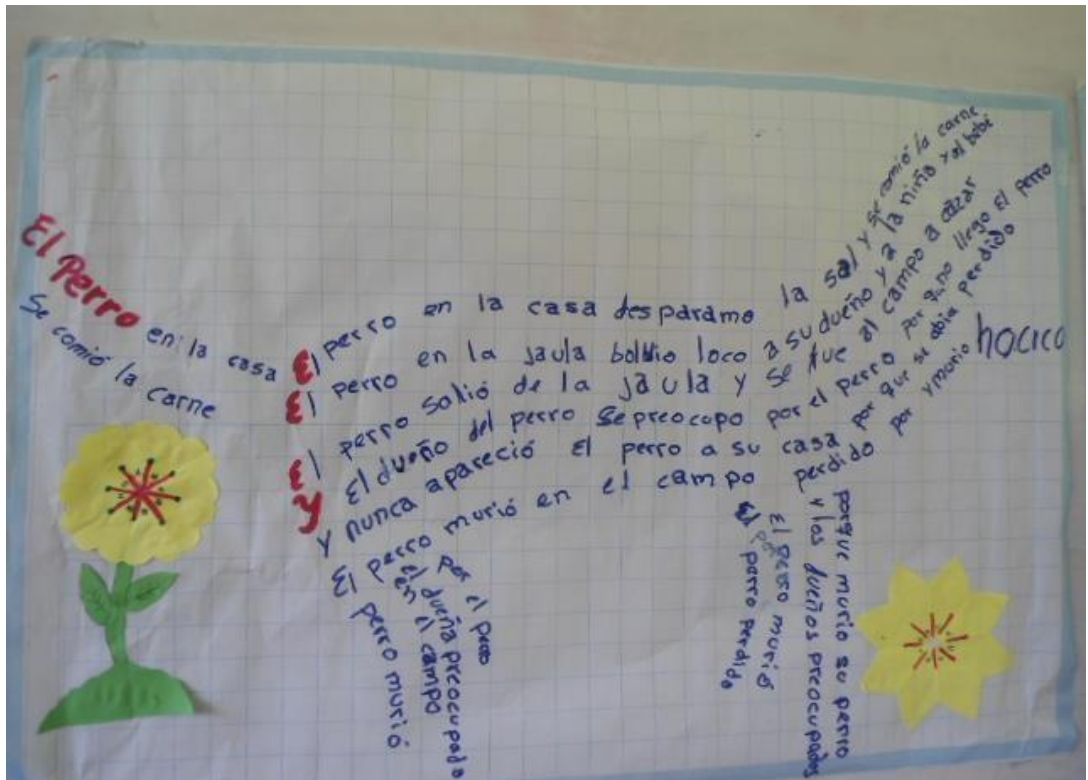 El Perro en la casa
se comió la carne
El perro en la casa desparamo la sal y se comió la carne
El perro en la jaula bolbio loco a su dueño y a la niña y al bebé
El perro salió de la jaula y se fue al campo a cazar
Y El dueño del perro se preocupo por el perro por que no llego El perro
y nunca apareció El perro a su casa por que se abia perdido
El perro murió en el campo perdido por y murio hocico
por el perro
el dueña preocupada
en el campo
El perro murió
El perro murió
El perro perdido
porque murio su perro
y los dueños preocupados